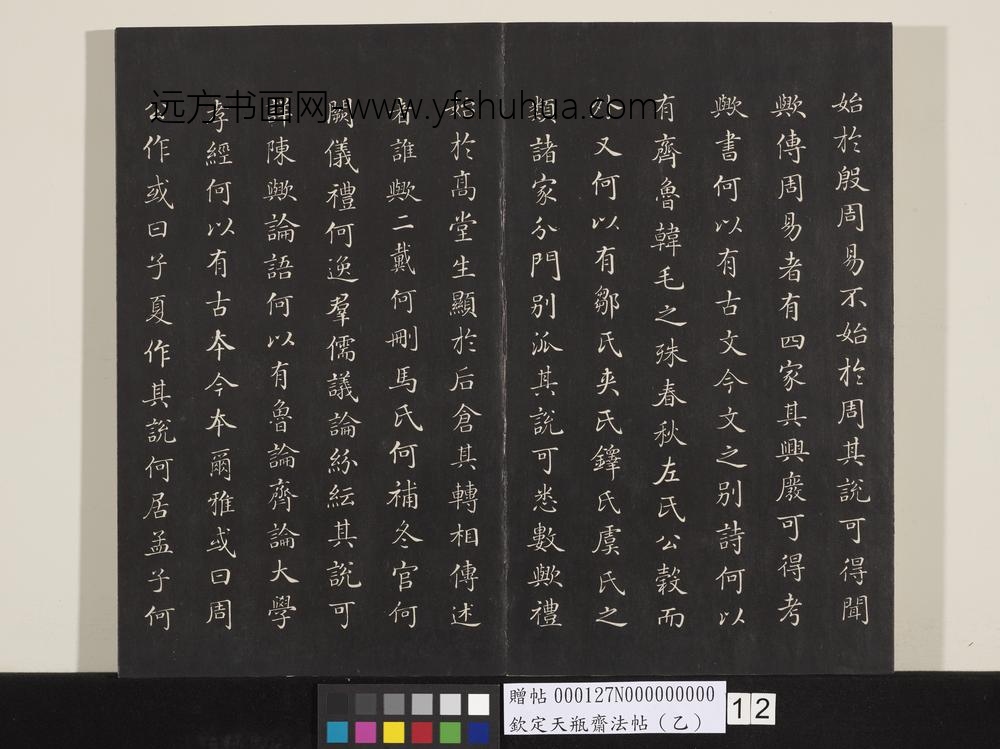 始於殷周易不始於周其說可得聞
歟傳周易者有四家其興廢可得考
歟書何以有古文今文之别詩何以
有齊魯韓毛之殊春秋左氏公穀而
外又何以有鄒氏夾氏鐸氏虞氏之
類諸家分門别派其說可悉數歟禮
於高堂生顯於后倉其轉相傳述
者誰歟二戴何刪馬氏何補冬官何
闕儀禮何逸羣儒議論紛紜其說可
詳陳歟論語何以有魯論齊論大學
孝經何以有古本今本爾雅或曰周
公作或曰子夏作其說何居孟子何
远方书画网 www.yfshuhua.com
贈帖 000127N000000000
欽定天瓶齋法帖（乙）
12